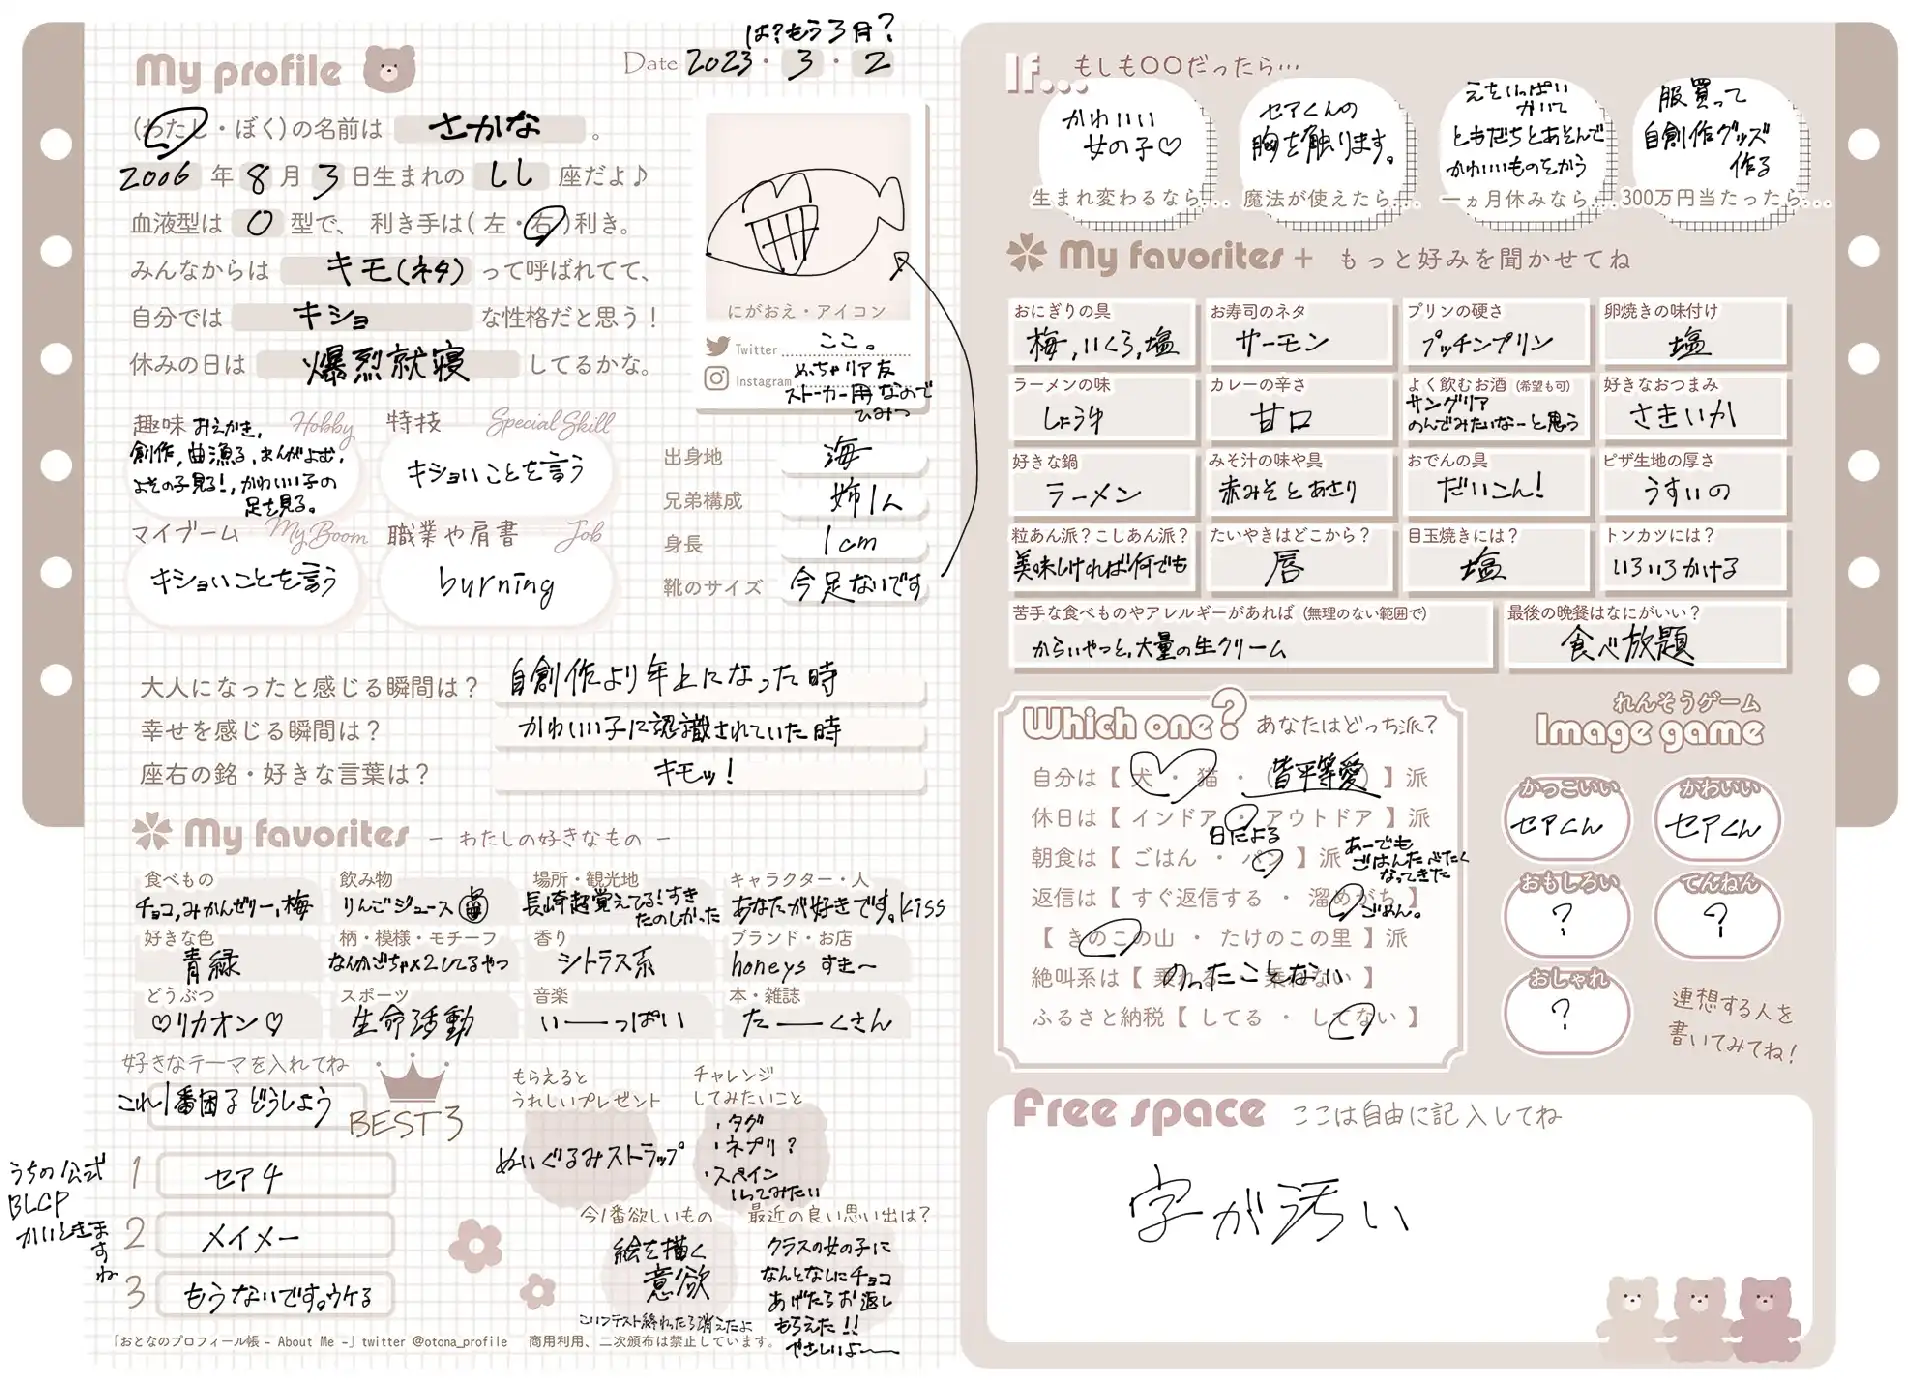 My profile
は?もう3月?
Date 2023・3・2
(わたし・ぼく)の名前は さかな 。
2006 年 8 月 3 日生まれの しし 座だよ♪
血液型は O 型で、 利き手は(左・右)利き。
みんなからは キモ(ネタ) って呼ばれてて、
自分では キショ な性格だと思う!
休みの日は 爆烈就寝 してるかな。
にがおえ・アイコン
Twitter ここ。
Instagram めっちゃリア友
ストーカー用なので
ひみつ
趣味 Hobby
おえかき,
創作,曲漁る,まんがよむ,
よその子見る!,かわいい子の
足を見る。
特技 Special Skill
キショいことを言う
マイブーム My Boom
キショいことを言う
職業や肩書 Job
burning
出身地 海
兄弟構成 姉1人
身長 1cm
靴のサイズ 今足ないです
大人になったと感じる瞬間は? 自創作より年上になった時
幸せを感じる瞬間は? かわいい子に認識されていた時
座右の銘・好きな言葉は? キモッ!
My favorites - わたしの好きなもの -
食べもの
チョコ,みかんゼリー,梅
飲み物
りんごジュース
場所・観光地
長崎超覚えてる!すき
たのしかった
キャラクター・人
あなたが好きです。kiss
好きな色
青緑
柄・模様・モチーフ
なんかごちゃ×2してるやつ
香り
シトラス系
ブランド・お店
honeys すき〜
どうぶつ
♡リカオン♡
スポーツ
生命活動
音楽
いーっぱい
本・雑誌
たーくさん
好きなテーマを入れてね
これ1番困る どうしよう
BEST3
うちの公式
BLCP
かいときま
すね
1 セアチ
2 メイメー
3 もうないです。ウケる
もらえると
うれしいプレゼント
ぬいぐるみストラップ
チャレンジ
してみたいこと
・タグ
・ネプリ?
・スペイン
いってみたい
今1番欲しいもの
絵を描く
意欲
テスト終わったら消えたよ
最近の良い思い出は?
クラスの女の子に
なんとなしにチョコ
あげたらお返し
もらえた!!
やさしいよ——
「おとなのプロフィール帳 - About Me -」twitter @otona_profile 商用利用、二次頒布は禁止しています。
If... もしも〇〇だったら…
かわいい
女の子♡
生まれ変わるなら...
セアくんの
胸を触ります。
魔法が使えたら...
えをいっぱい
かいて
ともだちとあそんで
かわいいものをかう
一ヵ月休みなら...
服買って
自創作グッズ
作る
300万円当たったら...
My favorites + もっと好みを聞かせてね
おにぎりの具
梅,いくら,塩
お寿司のネタ
サーモン
プリンの硬さ
プッチンプリン
卵焼きの味付け
塩
ラーメンの味
しょうゆ
カレーの辛さ
甘口
よく飲むお酒 (希望も可)
サングリア
のんでみたいなーと思う
好きなおつまみ
さきいか
好きな鍋
ラーメン
みそ汁の味や具
赤みそとあさり
おでんの具
だいこん!
ピザ生地の厚さ
うすいの
粒あん派?こしあん派?
美味しければ何でも
たいやきはどこから?
唇
目玉焼きには?
塩
トンカツには?
いろいろかける
苦手な食べものやアレルギーがあれば (無理のない範囲で)
からいやつと,大量の生クリーム
最後の晩餐はなにがいい?
食べ放題
Which one? あなたはどっち派?
自分は【 犬 ・ 猫 ・ (皆平等愛) 】派
休日は【 インドア ・ アウトドア 】派
日による
朝食は【 ごはん ・ パン 】派
あーでも
ごはんたべたく
なってきた
返信は【 すぐ返信する ・ 溜めがち 】
ごめん。
【 きのこの山 ・ たけのこの里 】派
絶叫系は【 乗れる ・ 乗れない 】
のったことない
ふるさと納税【 してる ・ してない 】
れんそうゲーム
Image game
かっこいい
セアくん
かわいい
セアくん
おもしろい
?
てんねん
?
おしゃれ
?
連想する人を
書いてみてね!
Free space ここは自由に記入してね
字が汚い